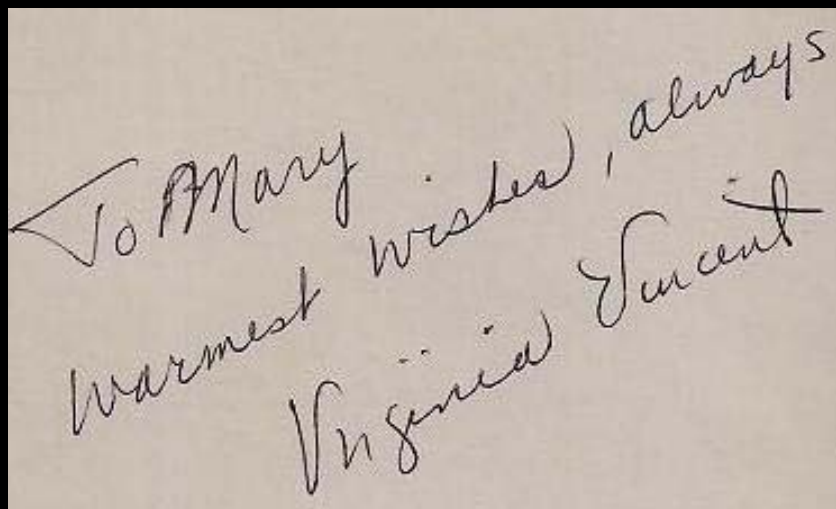 To Mary
warmest wishes, always
Virginia Vincent